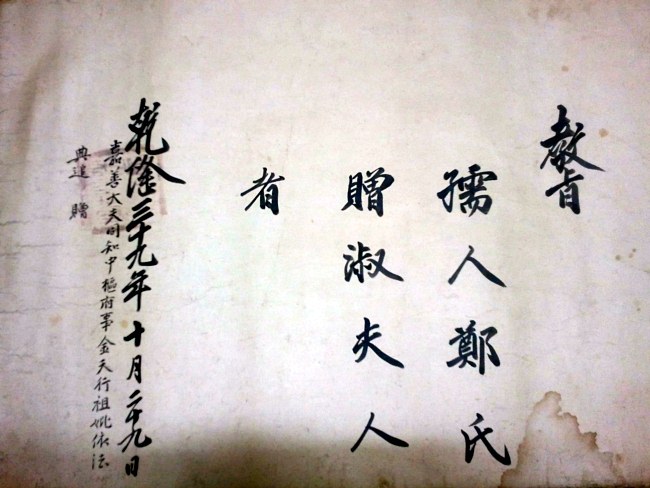 教旨
孺人鄭氏
贈淑夫人
者
乾隆三十九年十月二十九日
嘉善大夫同知中樞府事金天行祖妣依法
典追 贈